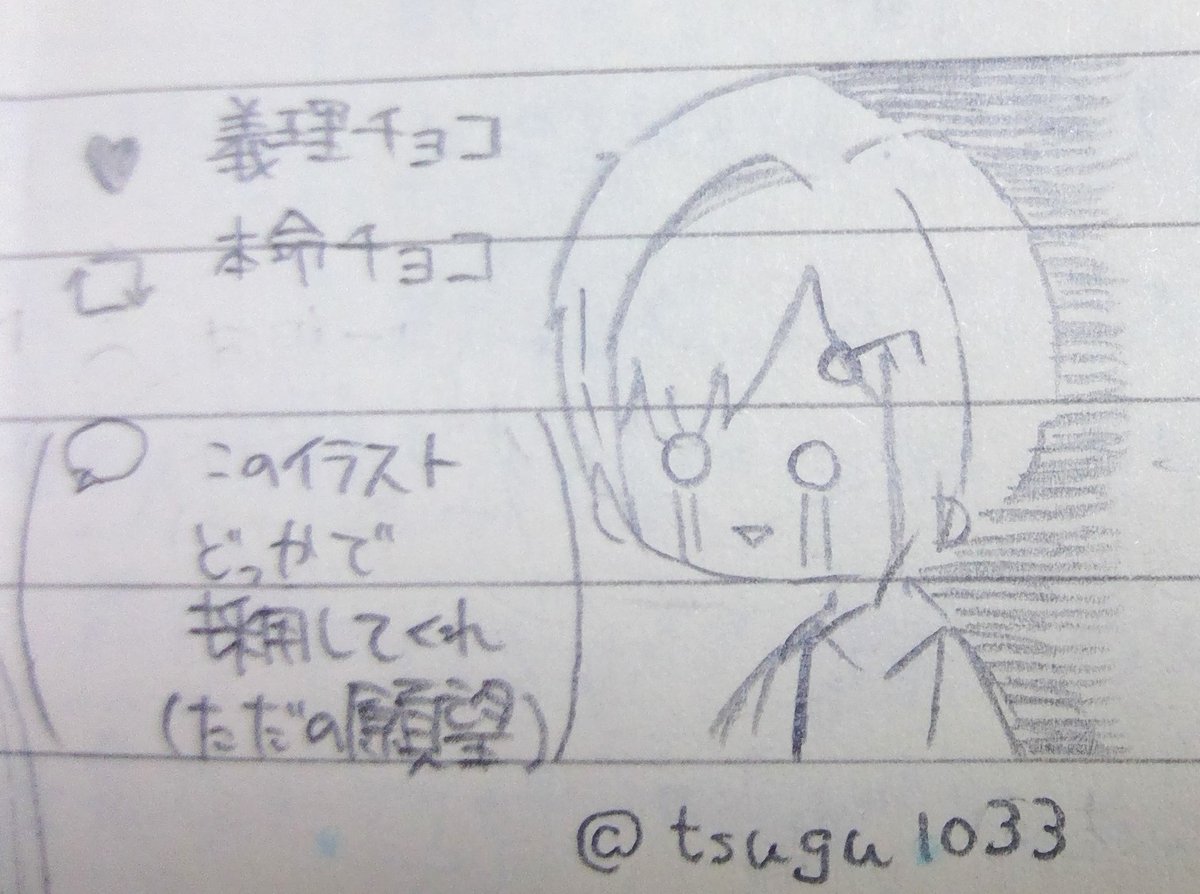 ♥ 義理チョコ
本命チョコ
このイラスト
どっかで
採用してくれ
(ただの願望)
@tsugu1033